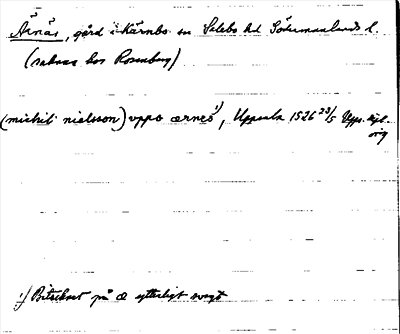 Årnäs, gård i Kärnbo sn Selebo hd Södermanlands l.
(saknas hos Rosenberg)
(michil nielsson) vppo ærnes¹⁾, Uppsala 1526 23/5 Upps. 
orig
1) Bitecknet på æ ytterligt svagt